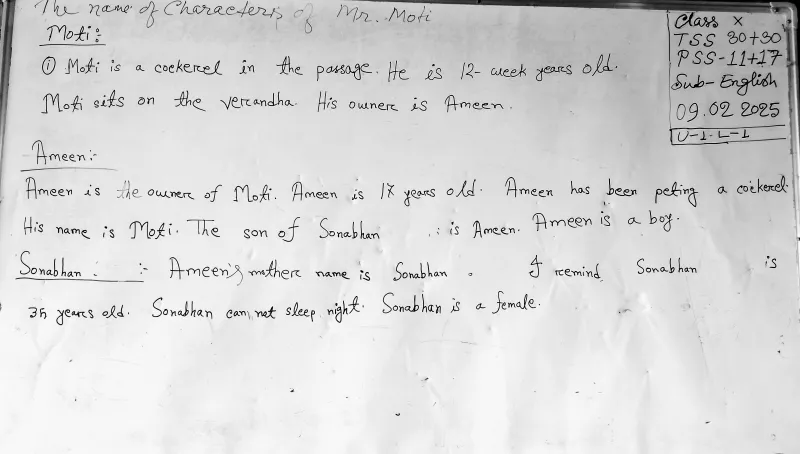 The name of Characters of Mr. Moti
Class X
TSS 30+30
PSS-11+17
Sub-English
09.02 2025
U-1. L-1
Moti:
① Moti is a cockerel in the passage. He is 12- week years old.
Moti sits on the verandha. His owner is Ameen.
Ameen:-
Ameen is the owner of Moti. Ameen is 17 years old. Ameen has been peting a cockerel.
His name is Moti. The son of Sonabhan is Ameen. Ameen is a boy.
Sonabhan :- Ameen's mother name is Sonabhan. I remind Sonabhan is
35 years old. Sonabhan can not sleep night. Sonabhan is a female.